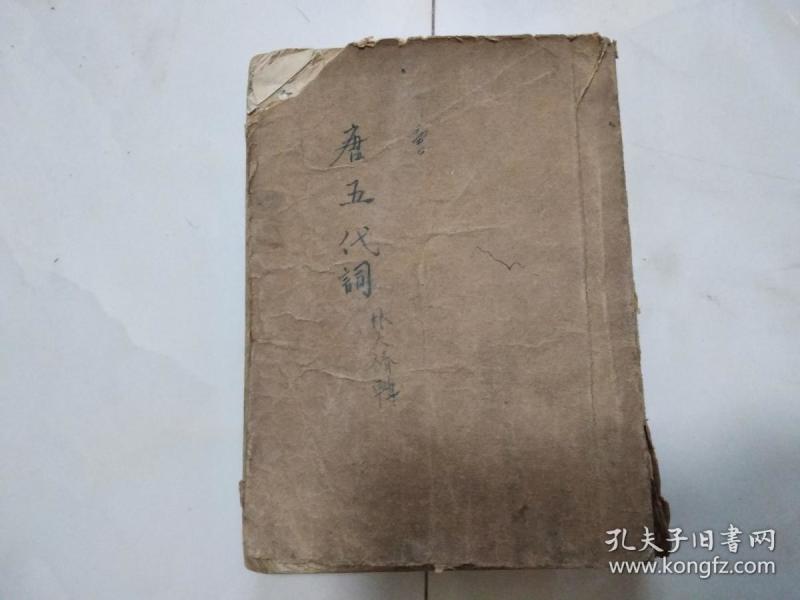 唐五代詞
林大椿輯
孔夫子旧書网
www.kongfz.com